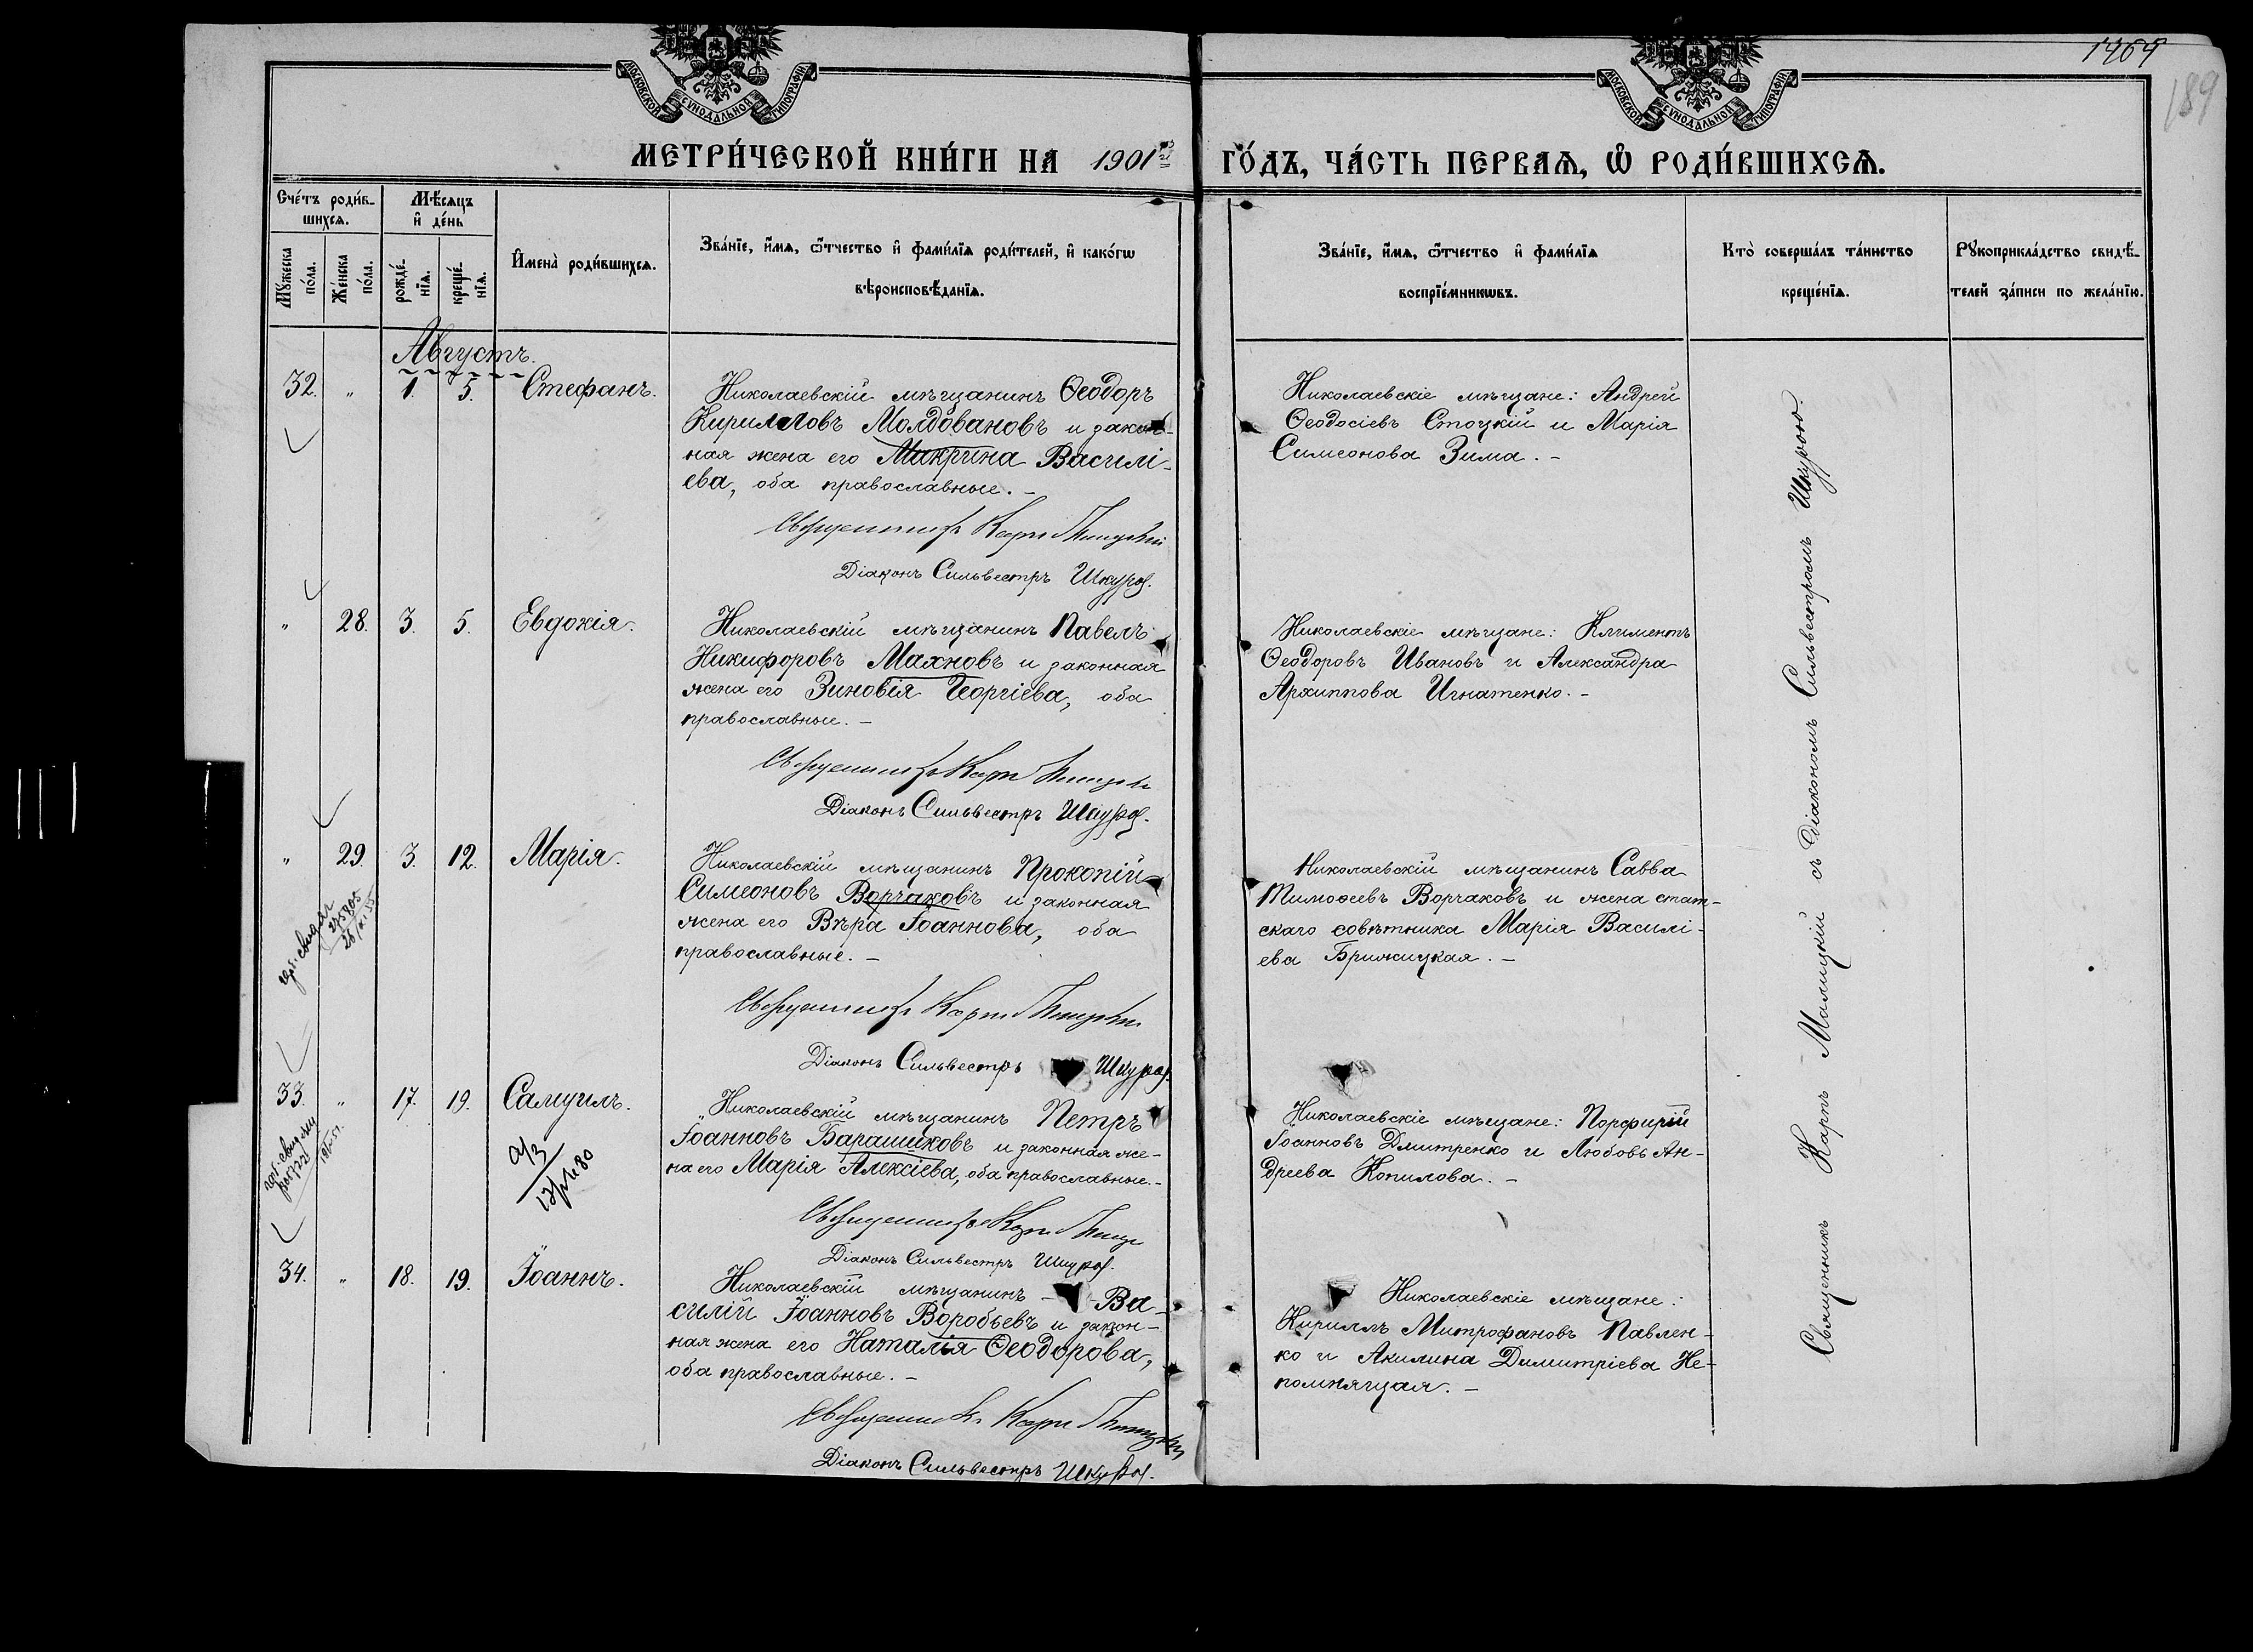 МОСКОВСКОЙ СѴНОДАЛЬНОЙ ТИПОГРАФІИ
МОСКОВСКОЙ СѴНОДАЛЬНОЙ ТИПОГРАФІИ
189
МЕТРИ́ЧЕСКОЙ КНИ́ГИ НА 1901 ГО́ДЪ, ЧА́СТЬ ПЕРВАѦ, Ѡ҆ РОДИ́ВШИХСѦ.
Сче́тъ роди́в-
шихсѧ.
Мѣ́сѧцъ
и҆ де́нь
Мꙋ́жеска
по́ла.
Же́нска
по́ла.
рожде́-
нїѧ.
креще́-
нїѧ.
И҆мена̀ роди́вшихсѧ.
Зва́нїе, и҆́мѧ, ѻ҆́тчество и҆ фами́лїѧ роди́телей, и҆ како́гѡ
вѣроисповѣ́данїѧ.
Зва́нїе, и҆́мѧ, ѻ҆́тчество и҆ фами́лїѧ
воспрїе́мникѡвъ.
Кто̀ соверша́лъ та́инство
креще́нїѧ.
Рꙋкоприкла́дство свидѣ́-
телей за́писи по жела́нїю.
Августъ.
32. " 1. 5. Стефанъ.
Николаевскій мѣщанинъ Ѳеодоръ
Кирилловъ Молдовановъ и закон-
ная жена его Макрина Василі-
ева, оба православные. –
Священникъ Карпъ
Діаконъ Сильвестръ Шкура.
Николаевскіе мѣщане: Андрей
Ѳеодосіевъ Стоцкій и Марія
Симеонова Зима. –
" 28. 3. 5. Евдокія.
Николаевскій мѣщанинъ Павелъ
Никифоровъ Махновъ и законная
жена его Зиновія Георгіева, оба
православные. –
Священникъ Карпъ
Діаконъ Сильвестръ Шкура.
Николаевскіе мѣщане: Климентъ
Ѳеодоровъ Ивановъ и Александра
Архиппова Игнатенко. –
" 29. 3. 12. Марія.
Николаевскій мѣщанинъ Прокопій
Симеоновъ Ворчаковъ и законная
жена его Вѣра Іоаннова, оба
православные. –
Священникъ Карпъ
Діаконъ Сильвестръ Шкура.
Николаевскій мѣщанинъ Савва
Тимоѳеевъ Ворчаковъ и жена стат-
скаго совѣтника Марія Василі-
ева Брижицкая. –
33. " 17. 19. Самуилъ.
Николаевскій мѣщанинъ Петръ
Іоанновъ Барашиковъ и законная же-
на его Марія Алексіева, оба православные. –
Священникъ Карпъ
Діаконъ Сильвестръ Шкура.
Николаевскіе мѣщане: Порфирій
Іоанновъ Дмитренко и Любовь Ан-
дреева Копилова. –
34. " 18. 19. Іоаннъ.
Николаевскій мѣщанинъ – Ва-
силій Іоанновъ Воробьевъ и закон-
ная жена его Наталія Ѳеодорова,
оба православные. –
Священникъ Карпъ
Діаконъ Сильвестръ Шкура.
Николаевскіе мѣщане:
Кириллъ Митрофановъ Павлен-
ко и Акилина Димитріева Не-
помнящая. –
Священникъ Карпъ Малицкій съ Діакономъ Сильвестромъ Шкурою.